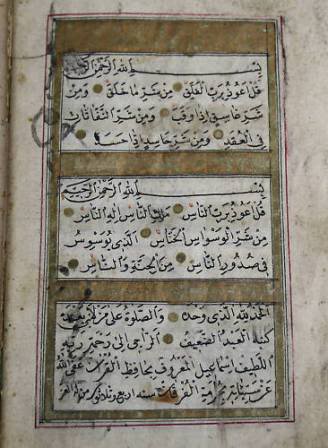 بِسْمِ اللهِ الرَّحْمٰنِ الرَّحِيمِ
قُلْ اَعُوذُ بِرَبِّ الْفَلَقِ مِنْ شَرِّ مَا خَلَقَ وَمِنْ
شَرِّ غَاسِقٍ اِذَا وَقَبَ وَمِنْ شَرِّ النَّفَّاثَاتِ
فِي الْعُقَدِ وَمِنْ شَرِّ حَاسِدٍ اِذَا حَسَدَ
بِسْمِ اللهِ الرَّحْمٰنِ الرَّحِيمِ
قُلْ اَعُوذُ بِرَبِّ النَّاسِ مَلِكِ النَّاسِ اِلٰهِ النَّاسِ
مِنْ شَرِّ الْوَسْوَاسِ الْخَنَّاسِ اَلَّذِي يُوَسْوِسُ
فِي صُدُورِ النَّاسِ مِنَ الْجِنَّةِ وَالنَّاسِ
الحمد لله الذي وحده والصلوة على من لا نبي بعده
كتبه العبد الضعيف الراجي الى رحمة ربه
اللطيف اسماعيل المعروف بحافظ القرآن عفى الله
عن بحرمة الفرقان سنه اربع وثلاثون